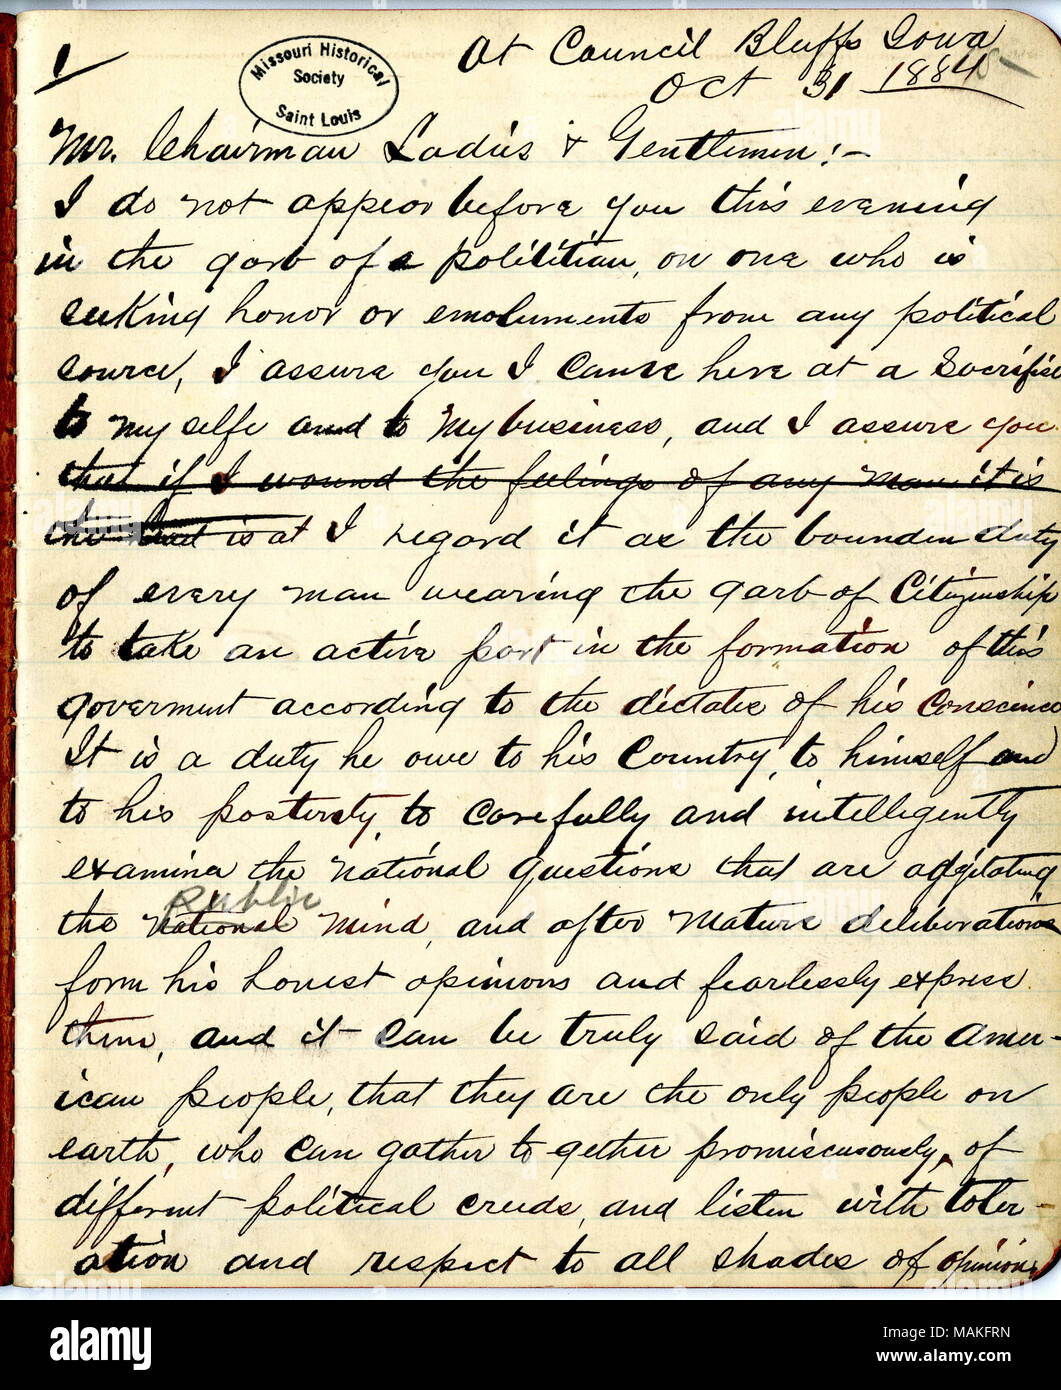 1
Missouri Historical
Society
Saint Louis
At Council Bluffs Iowa
Oct 31 1884
Mr. Chairman Ladies & Gentlemen:-
I do not appear before you this evening
in the garb of a polititian, or one who is
seeking honor or emoluments from any political
source, I assure you I came here at a Sacrifise
to my selfe and to My business, and I assure you
that if I wound the feelings of any man it is
is at I regard it as the bounden duty
of every man wearing the garb of Citizenship
to take an active part in the formation of this
goverment according to the dictates of his Conscience
It is a duty he owe to his Country, to himself and
to his posterety, to carefully and intellegently
examine the national questions that are adgitating
Public
the National Mind, and after Mature deliberations
form his honest opinions and fearlessly express
them, and it can be truly said of the Amer-
ican people, that they are the only people on
earth, who can gather to gether promiscuously, of
different political creeds, and listen with toler-
ation and respect to all shades of opinions,
alamy
Image ID: MAKFRN
www.alamy.com